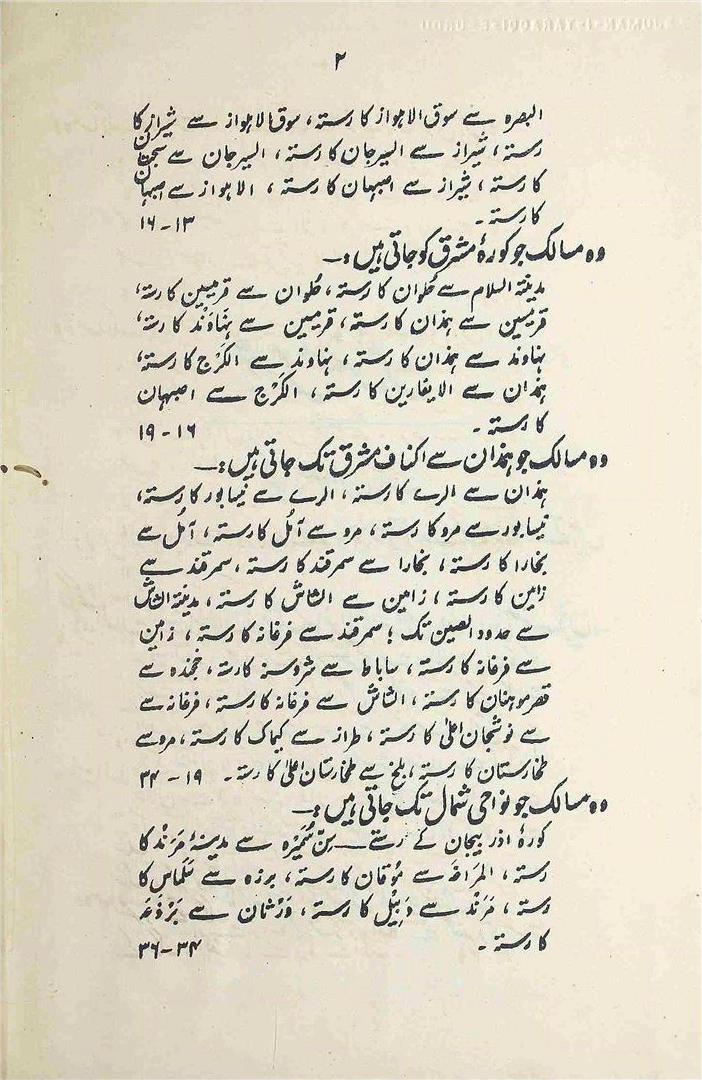 ۲
البصرہ سے سوق الاہواز کا رستہ، سوق الاہواز سے شیراز کا
رستہ، شیراز سے السیرجان کا رستہ، السیرجان سے سجستان
کا رستہ، شیراز سے اصبہان کا رستہ، الاہواز سے اصبہان
کا رستہ۔ ۱۳–۱۶
وہ مسالک جو کورۂ مشرق کو جاتی ہیں:۔
مدینۃ السلام سے حُلوان کا رستہ، حُلوان سے قرمیسین کا رستہ،
قرمیسین سے ہمذان کا رستہ، قرمیسین سے نہاوَند کا رستہ،
نہاوند سے ہمذان کا رستہ، نہاوند سے الکَرَج کا رستہ،
ہمذان سے الایغارین کا رستہ، الکَرَج سے اصبہان
کا رستہ۔ ۱۶–۱۹
وہ مسالک جو ہمذان سے اکناف مشرق تک جاتی ہیں:۔
ہمذان سے الرے کا رستہ، الرے سے نیسابور کا رستہ،
نیسابور سے مرو کا رستہ، مرو سے آمُل کا رستہ، آمُل سے
بخارا کا رستہ، بخارا سے سمرقند کا رستہ، سمرقند سے
زامین کا رستہ، زامین سے الشاش کا رستہ، مدینۃ الشاش
سے حدود الصین تک؛ سمرقند سے فرغانہ کا رستہ، زامین
سے فرغانہ کا رستہ، ساباط سے شروسنہ کا رستہ، خجندہ سے
کا رستہ، الشاش سے فرغانہ کا رستہ، فرغانہ سے
سے نوشجان اعلیٰ کا رستہ، طراز سے کیماک کا رستہ، مرو سے
طخارستان کا رستہ، بلخ سے طخارستان اعلیٰ کا رستہ۔ ۱۹–۳۴
وہ مسالک جو نواحی شمال تک جاتی ہیں:۔
کورۂ اذربیجان کے رستے — سِنّ سُمَیْرَہ سے مدینۂ مَرَنْد کا
رستہ، المراغہ سے مُوقان کا رستہ، برزہ سے سَلَماس کا
رستہ، مَرَنْد سے دَبِیْل کا رستہ، وَرْثان سے بَرْذَعَہ
کا رستہ۔ ۳۴–۳۶